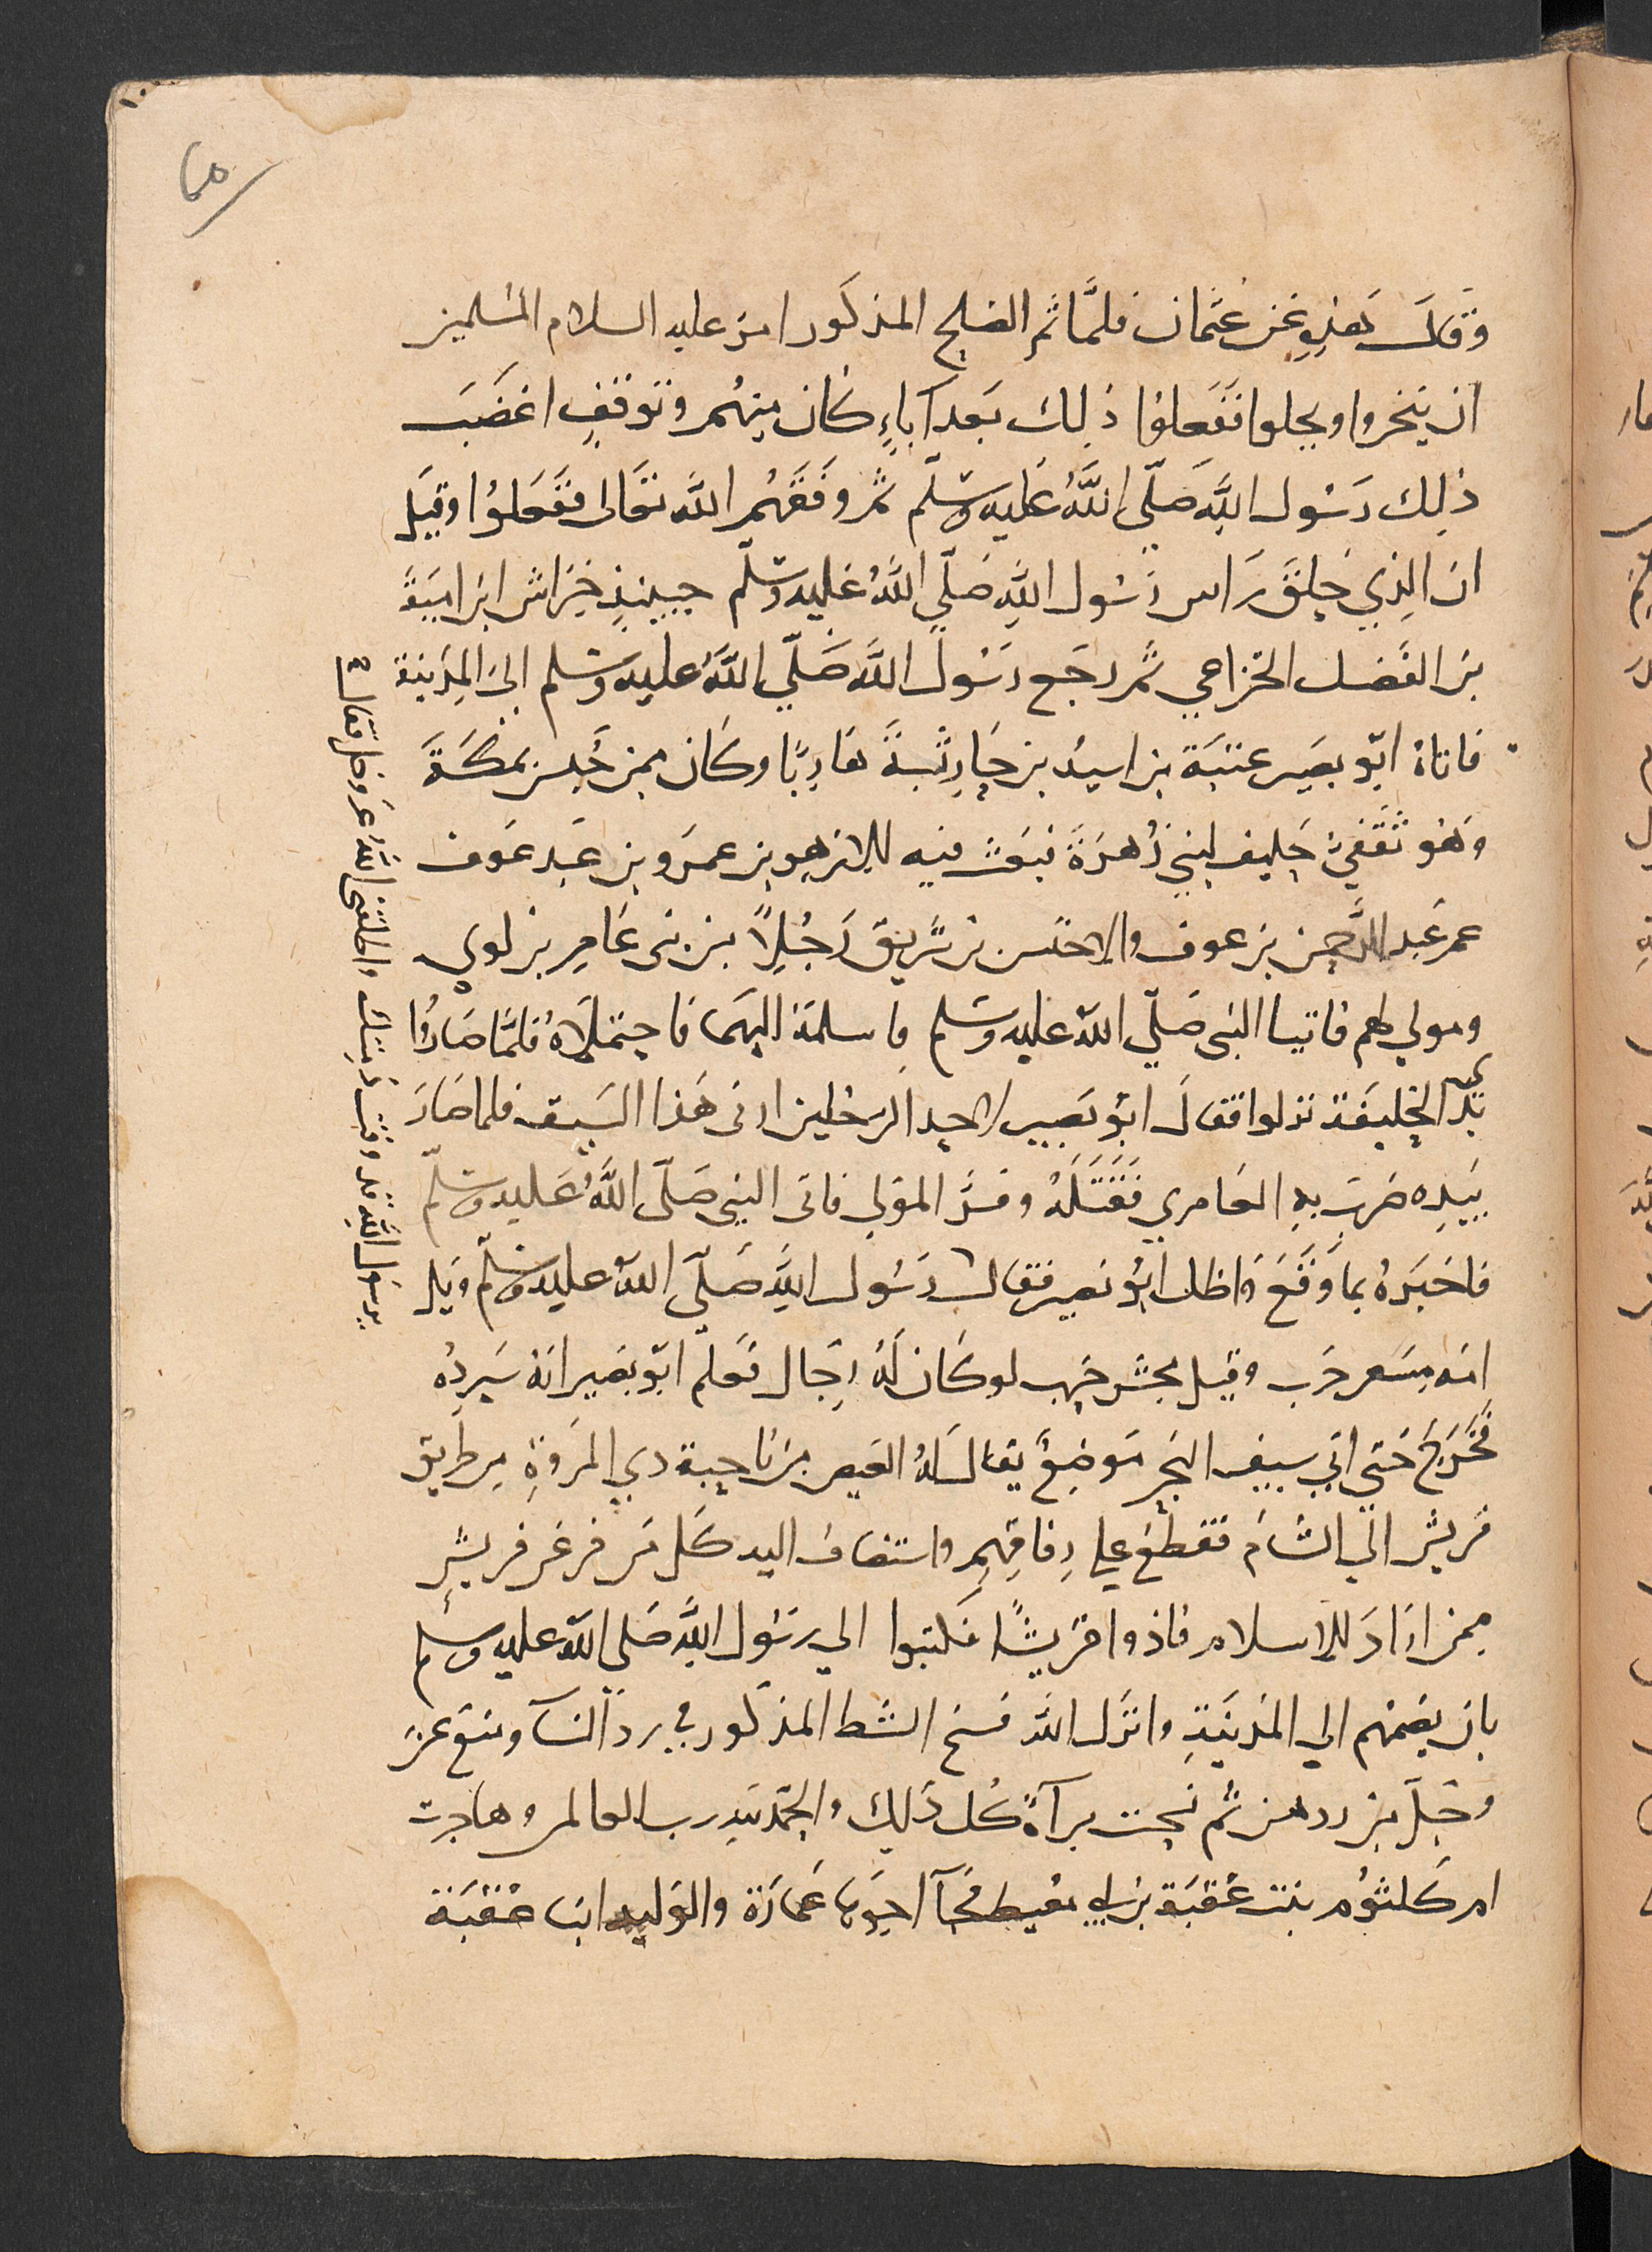 وقال هذه عن عثمان فلما تم الصلح المذكور امر عليه السلام المسلمين
ان ينحروا ويحلوا ففعلوا ذلك بعد آباءٍ كان منهم وتوقف اغضب
ذلك رسول الله صلى الله عليه وسلم ثم وفقهم الله تعالى ففعلوا وقيل
ان الذي حلق راس رسول الله صلى الله عليه وسلم حينئذ خراش ابن امية
بن الفضل الخزاعي ثم رجع رسول الله صلى الله عليه وسلم الى المدينة
فاتاه ابو بصير عتبة بن اسيد بن جارية هاربا وكان ممن حبس بمكة
وهو ثقفي حليف لبني زهرة فبعث فيه الازهر بن عمرو بن عبد عوف
عم عبد الرحمن بن عوف والاخنس بن شريق رجلاً من بني عامر بن لوي
ومولى لهم فاتيا النبي صلى الله عليه وسلم فاسلمه اليهما فاحتملاه فلما صاروا
بذي الحليفة نزلوا فقال ابو بصير لاحد الرجلين ارني هذا السيف فلما صار
بيده ضرب به العامري فقتله وفر المولى فاتى النبي صلى الله عليه وسلم
فاخبره بما وقع واظل ابو بصير فقال رسول الله صلى الله عليه وسلم ويل
امه مسعر حرب وقيل محش حرب لو كان له رجال فعلم ابو بصير انه سيرده
فخرج حتى اتى سيف البحر موضع يقال له العيص من ناحية ذي المروة من طريق
قريش الى الشام فقطع على رفاقهم واستضاف اليه كل من فر عن قريش
ممن اراد للاسلام فاذوا قريشا فكتبوا الى رسول الله صلى الله عليه وسلم
بان يضمهم الى المدينة وانزل الله فسخ الشط المذكور في رد النسآ ومنع عز
وجل من ردهن ثم نسخت برآة كل ذلك والحمد لله رب العالمن وهاجرت
ام كلثوم بنت عقبة بن ابي معيط فجآ اخوها عمارة والوليد ابنا عقبة
يرسول الله قد وفت ذمتك واطلقني الله عز وجل فقال ع